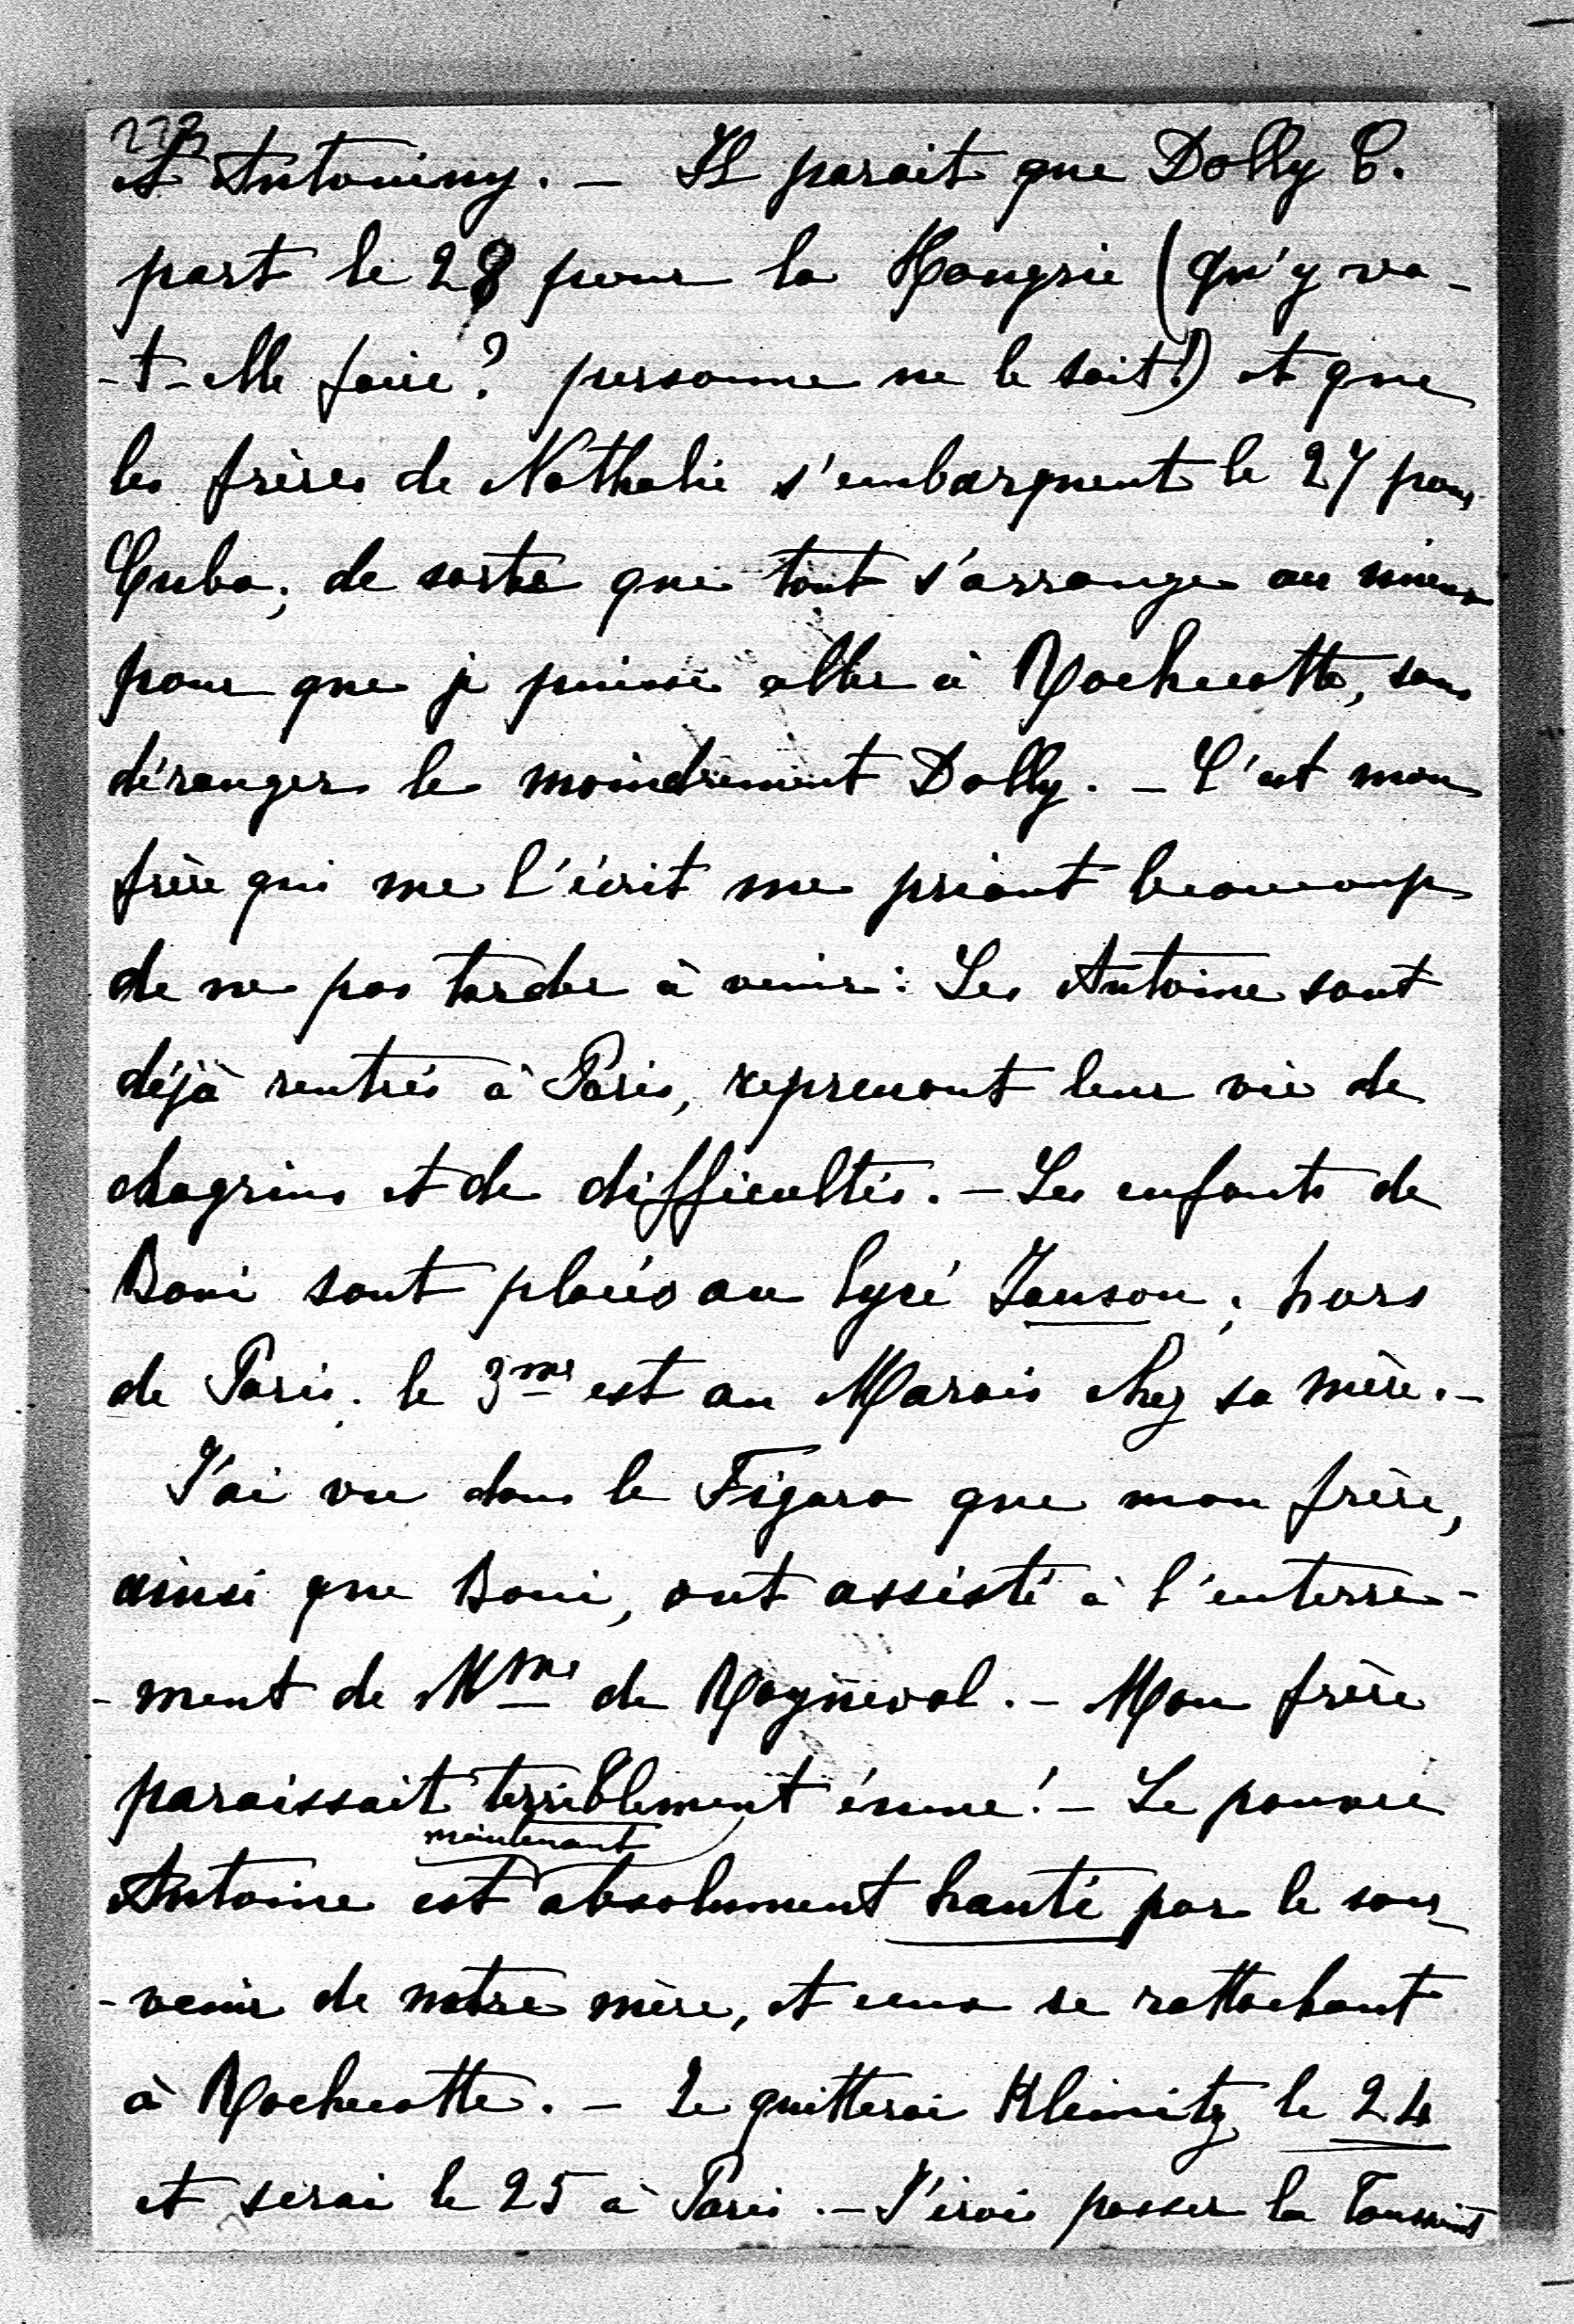 273
et Antoniny. – Il parait que Dolly C.
part le 28 pour la Hongrie (qu'y va-
-t-elle faire? personne ne le sait!) et que
les frères de Nathalie s'embarquent le 27 pour
Cuba; de sorte que tout s'arrange au mieux
pour que je puisse aller à Rochecotte, sans
déranger le moindrement Dolly. – C'est mon
frère qui me l'écrit me priant beaucoup
de ne pas tarder à venir: Les Antoine sont
déjà rentrés à Paris, reprenant leur vie de
chagrins et de difficultés. – Les enfants de
Boni sont placés au lycé Janson; hors
de Paris. le 3me est au Marais chez sa mère. –
J'ai vu dans le Figaro que mon frère,
ainsi que Boni, ont assisté à l'enterre-
-ment de Mme de Rayneval. – Mon frère
paraissait terriblement énervé! – Le pauvre
maintenant
Antoine est absolument hanté par le sou-
-venir de notre mère, et ceux se rattachant
à Rochecotte. – Je quitterai Kleinitz le 24
et serai le 25 à Paris. – J'irai passer la Toussaint